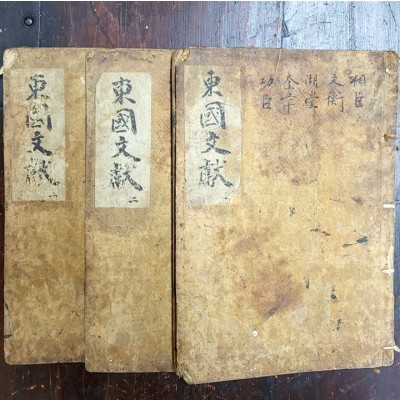 相臣
文衡
湖堂
奎章
功臣
東國文獻
東國文獻 二
東國文獻